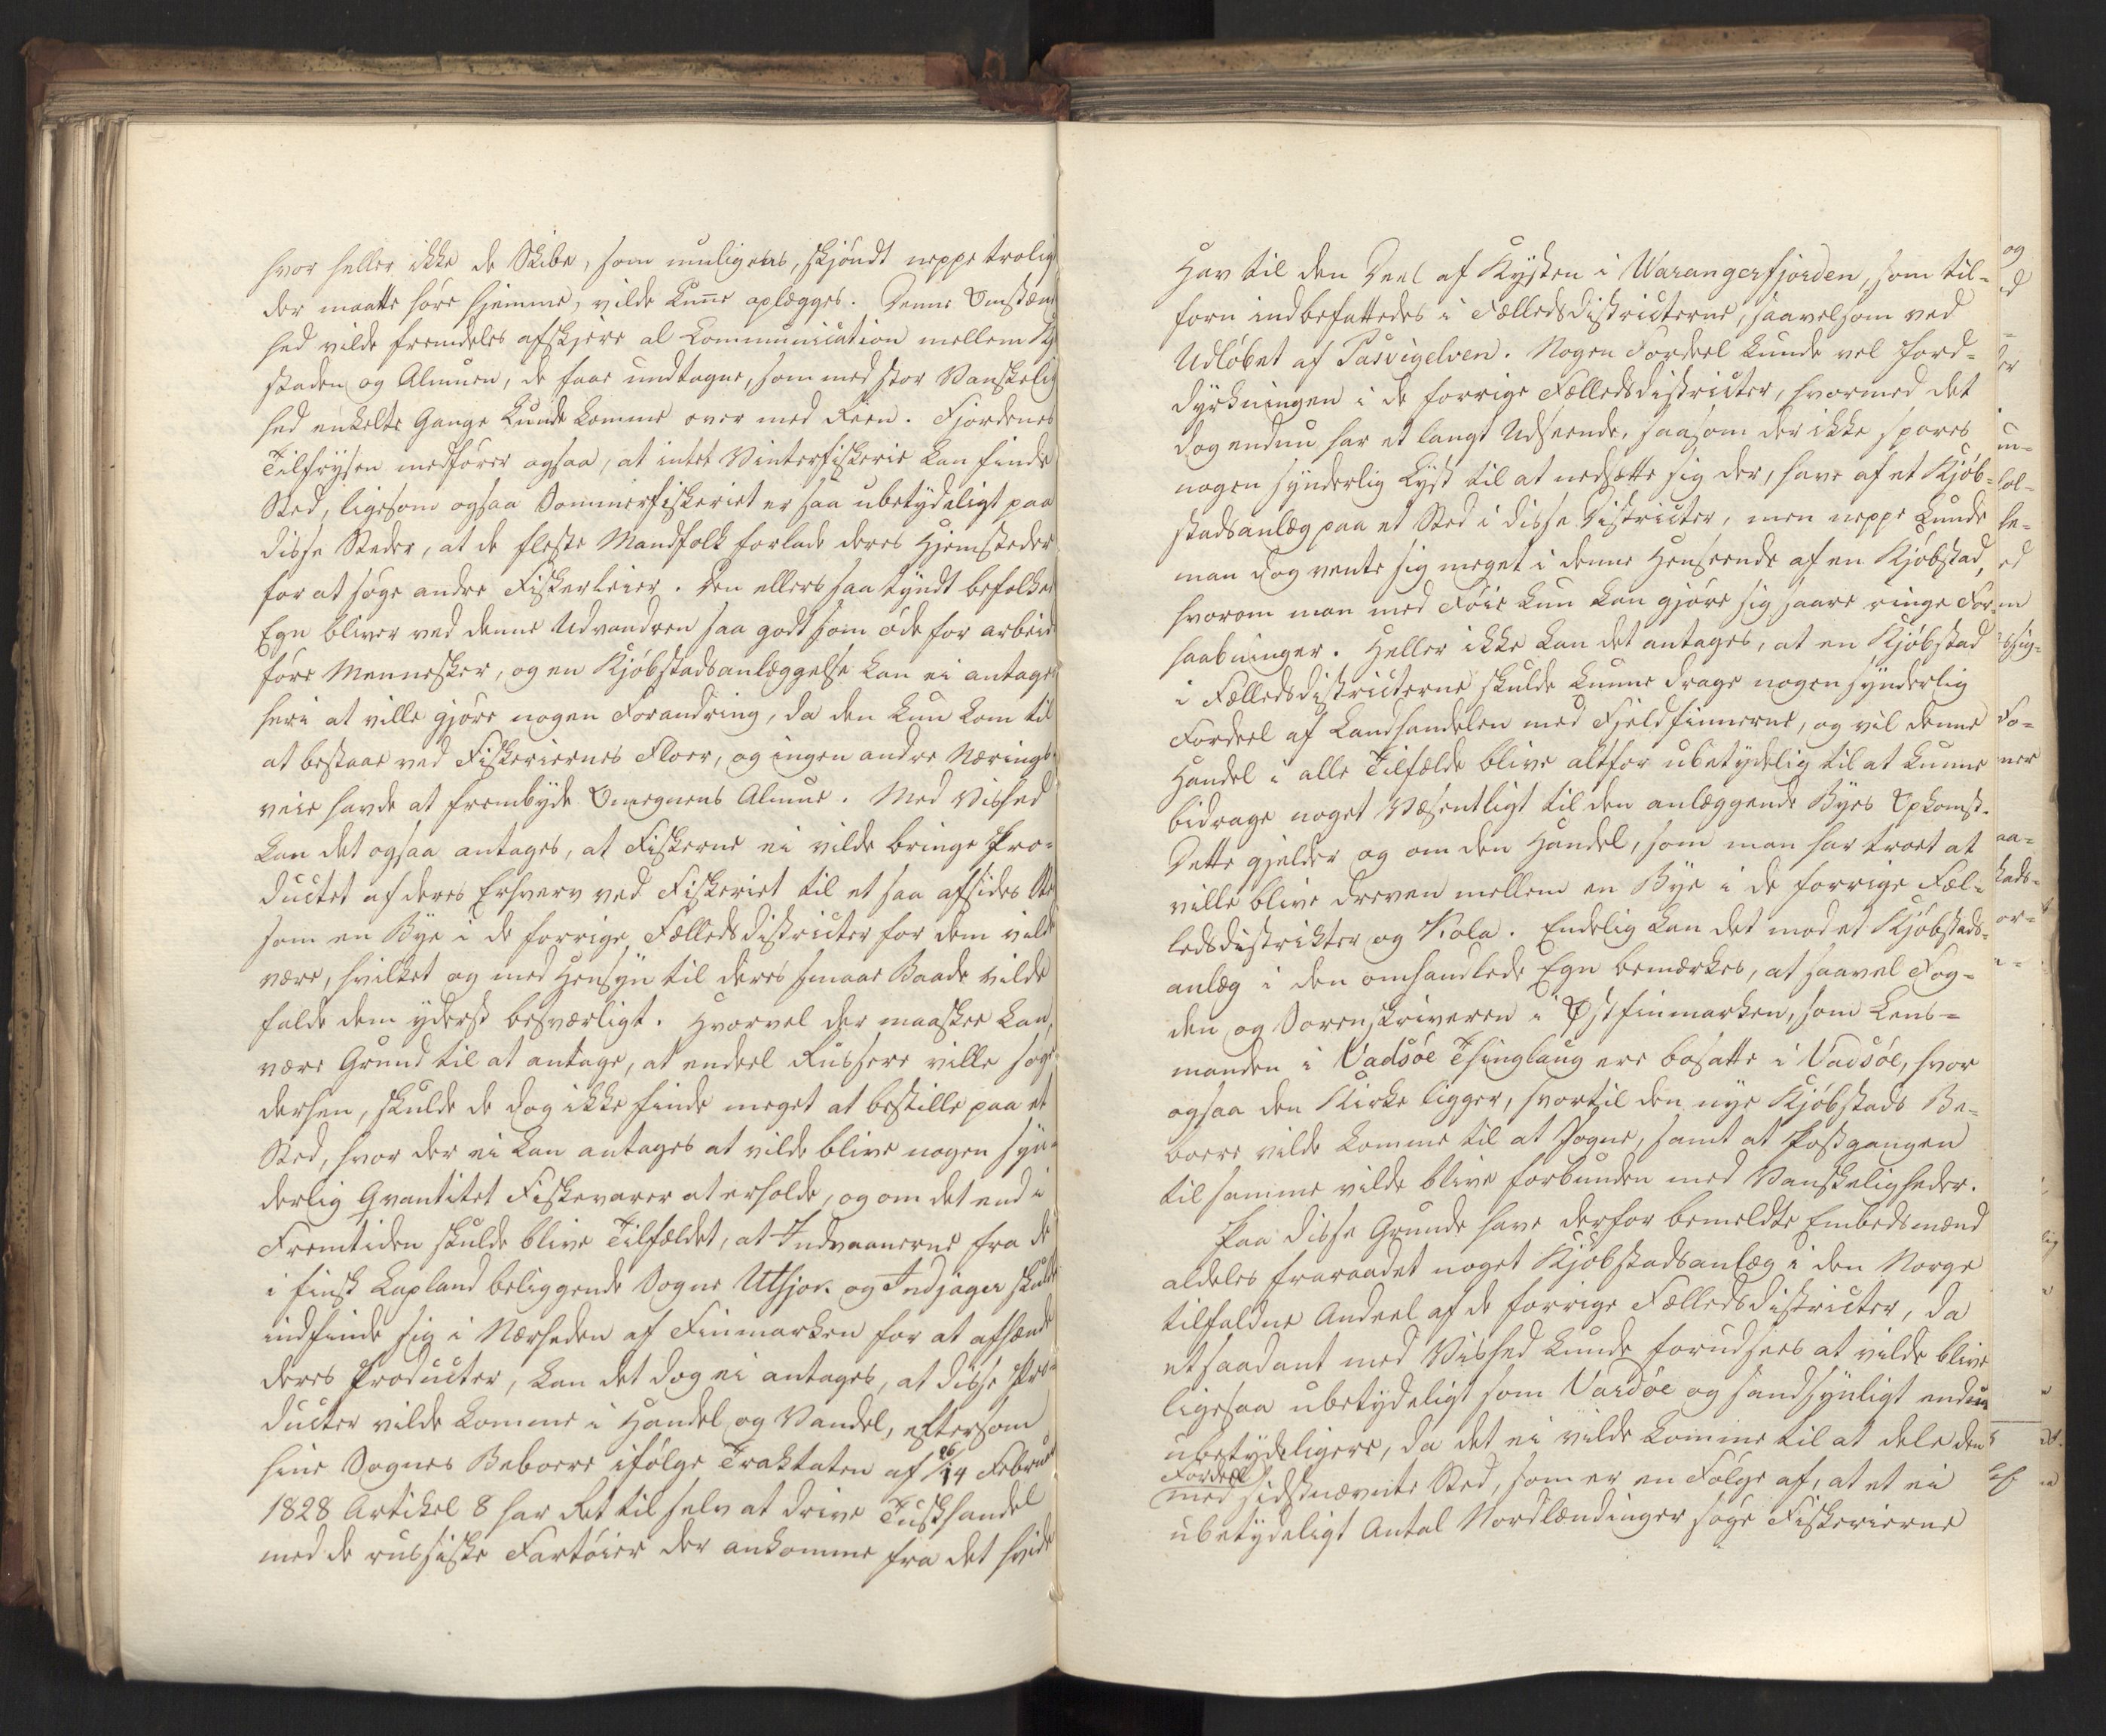 hvor heller ikke de Skibe, som muligens, skjöndt neppe trolig
der maatte høre hjemme, vilde kunne oplægges. Denne Omstæn
hed vilde fremdeles afskjere al Communication mellem Kj
staden og Almuen, de faae undtagne, som med stor Vanskelig
hed enkelte Gange kunde komme over med Reen. Fjordenes
Tilfrysen medfører ogsaa, at intet Vinterfiskerie kan finde
Sted, ligesom ogsaa Sommerfiskeriet er saa ubetydeligt paa
disse Steder, at de fleste Mandfolk forlade deres Hjemsteder
for at søge andre Fiskerleier. Den ellers saa tyndt befolkede
Egn bliver ved denne Udvandren saa godt som øde for arbeid
føre Mennesker, og en Kjøbstadsanlæggelse kan ei antages
heri at ville gjøre nogen Forandring, da den kun kom til
at bestaae ved Fiskeriernes Floer, og ingen andre Nærings-
veie havde at frembyde Omegnens Almue. Med Vished
kan det ogsaa antages, at Fiskerne ei vilde bringe Pro-
ductet af deres Erhverv ved Fiskeriet til et saa afsides Ste
som en Bye i de forrige Fælledsdistricter for dem vilde
være, hvilket og med Hensyn til deres smaae Baade vilde
falde dem yderst besværligt. Hvorvel der maaskee kan
være Grund til at antage, at endeel Russere ville søge
derhen, skulde de dog ikke finde meget at bestille paa et
Sted, hvor der ei kan antages at vilde blive nogen syn-
derlig Qvantitet Fiskevarer at erholde, og om det end i
Fremtiden skulde blive Tilfældet, at Indvaanerne fra de
i finsk Lapland beliggende Sogne Utsjok og Indjager skulde
indfinde sig i Nærheden af Finmarken for at afhænde
deres Producter, kan det dog ei antages, at disse Pro-
ducter vilde komme i Handel og Vandel, eftersom
hine Sognes Beboere ifølge Traktaten af 26/14 Februar
1828 Artikel 8 har Ret til selv at drive Tuskhandel
med de russiske Fartøier der ankomme fra det hvide
Hav til den Deel af Kysten i Warangerfjorden, som til-
forn indbefattedes i Fællesdistricterne, saavelsom ved
Udløbet af Pasvigelven. Nogen Fordeel kunde vel Jord-
dyrkningen i de forrige Fællesdistricter, hvormed det
dog endnu har et langt Udseende, saasom der ikke spores
nogen synderlig Lyst til at nedsætte sig der, have af et Kjøb-
stadsanlæg paa et Sted i disse Districter, men neppe kunde
man dog vente sig meget i denne Henseende af en Kjøbstad,
hvorom man med Føie kun kan gjøre sig saare ringe For-
haabninger. Heller ikke kan det antages, at en Kjøbstad
i Fællesdistricterne skulde kunne drage nogen synderlig
Fordeel af Landhandelen med Fjeldfinnerne, og vil denne
Handel i alle Tilfælde blive altfor ubetydelig til at kunne
bidrage noget Væsentligt til den anlæggende Byes Opkomst.
Dette gjelder og om den Handel, som man har troet at
ville blive dreven mellem en Bye i de forrige Fæl-
ledsdistrikter og Kola. Endelig kan det mod et Kjøbstads-
anlæg i den omhandlede Egn bemærkes, at saavel Fog-
den og Sorenskriveren i Østfinmarken, som Lens-
manden i Vadsøe Thinglaug ere bosatte i Vadsøe, hvor
ogsaa den Kirke ligger, hvortil den nye Kjøbstads Be-
boere vilde komme til at sogne, samt at Postgangen
til samme vilde blive forbunden med Vanskeligheder.
Paa disse Grunde have derfor bemeldte Embedsmænd
aldeles fraraadet noget Kjøbstadsanlæg i den Norge
tilfaldne Andeel af de forrige Fællesdistricter, da
et saadant med Vished kunde forudsees at vilde blive
ligesaa ubetydeligt som Vardøe og sandsynligt endnu
ubetydeligere, da det ei vilde komme til at dele den
Fordeel
med sidstnævnte Sted, som er en Følge af, at et ei
ubetydeligt Antal Nordlændinger søge Fiskerierne